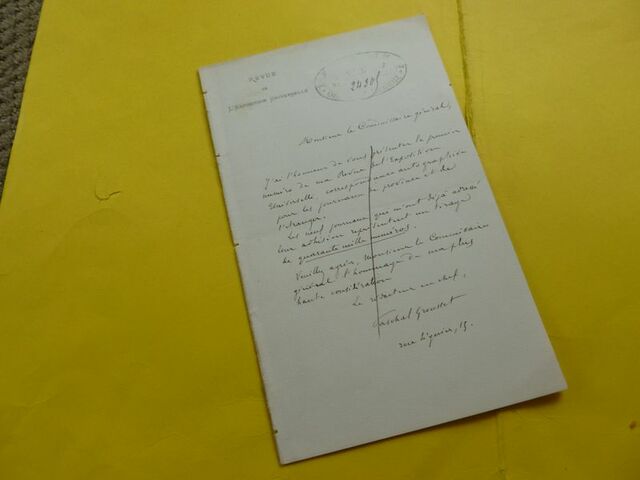 REVUE
DE
L'EXPOSITION UNIVERSELLE
24305
Monsieur le Commissaire général,
J'ai l'honneur de vous présenter le premier
numéro de ma Revue de l'Exposition
Universelle, correspondance autographiée
pour les journaux de province et de
l'étranger.
Les neuf journaux qui m'ont déjà adressé
leur adhésion représentent un tirage
de quarante mille numéros.
Veuillez agréer, Monsieur le Commissaire
général, l'hommage de ma plus
haute considération
Le rédacteur en chef,
Paschal Grousset
rue 15.